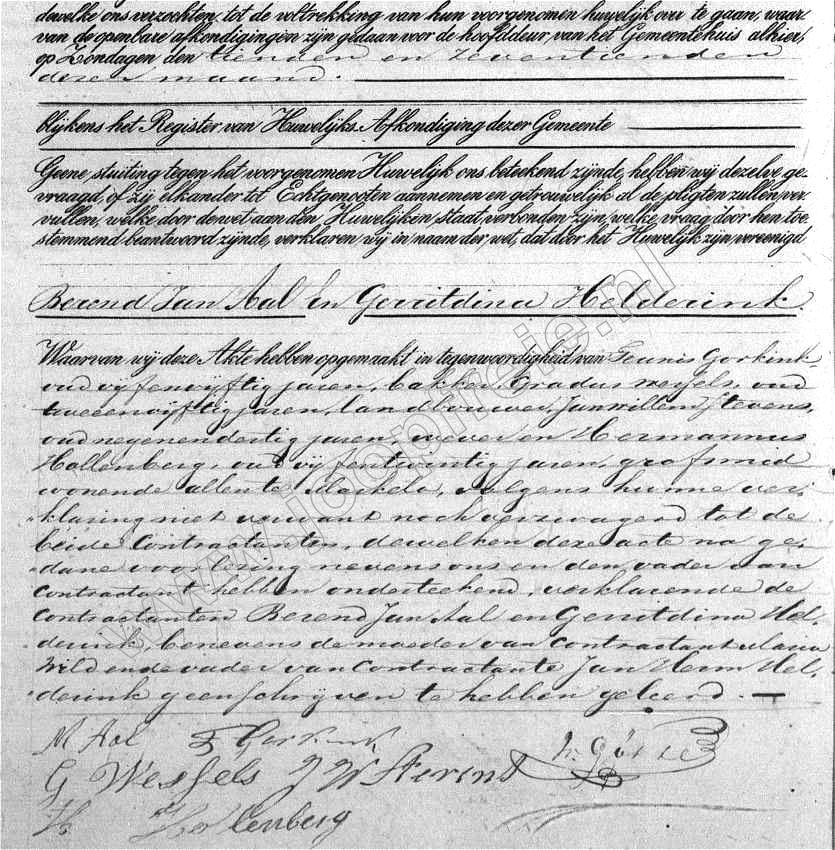 dewelke ons verzochten, tot de voltrekking van hun voorgenomen huwelijk over te gaan, waar
van de openbare afkondigingen zijn gedaan voor de hoofddeur, van het Gemeentehuis alhier,
op Zondagen den tienden en zeventienden
dezer maand.
blijkens het Register van Huwelijks Afkondiging dezer Gemeente
Geene stuiting tegen het voorgenomen Huwelijk ons beteekend zijnde, hebben wij dezelve ge,
vraagd, of zij elkander tot Echtgenooten aannemen en getrouwelijk al de pligten zullen ver,
vullen, welke door de wet aan den Huwelijken, staat, verbonden zijn, welke vraag door hen toe,
stemmend beantwoord zijnde, verklaren, wij in naam der, wet, dat door het Huwelijk zijn vereenigd
Berend Jan Aal en Gerritdina Helderink.
Waarvan wij deze Akte hebben opgemaakt in tegenwoordigheid van Teunis Gorkink
oud vijfenvijftig jaren, bakker, Gradus Wessels, oud
tweeenvijftig jaren, landbouwer, Jan Willem Stevens,
oud negenendertig jaren, wever en Hermannus
Hollenberg, oud vijfentwintig jaren, grofsmid
wonende allen te Markelo, volgens hunne ver,
klaring niet verwant noch verzwagerd tot de
beide Contractanten, dewelken deze acte na ge,
dane voorlezing nevens ons en den vader van
Contractant hebben onderteekend, verklarende de
Contractanten Berend Jan Aal en Gerritdina Hel,
derink, benevens de moeder van Contractant
en de vader van Contractante Jan Herm Hel,
derink geen schrijven te hebben geleerd.
M Aal T Gorkink
G Wessels J W Stevens
H Hollenberg
www.joopfreie.nl